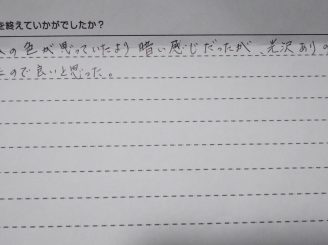 を終えていかがでしたか？
の色が思っていたより暗い感じだったが、光沢あり
ので良いと思った。